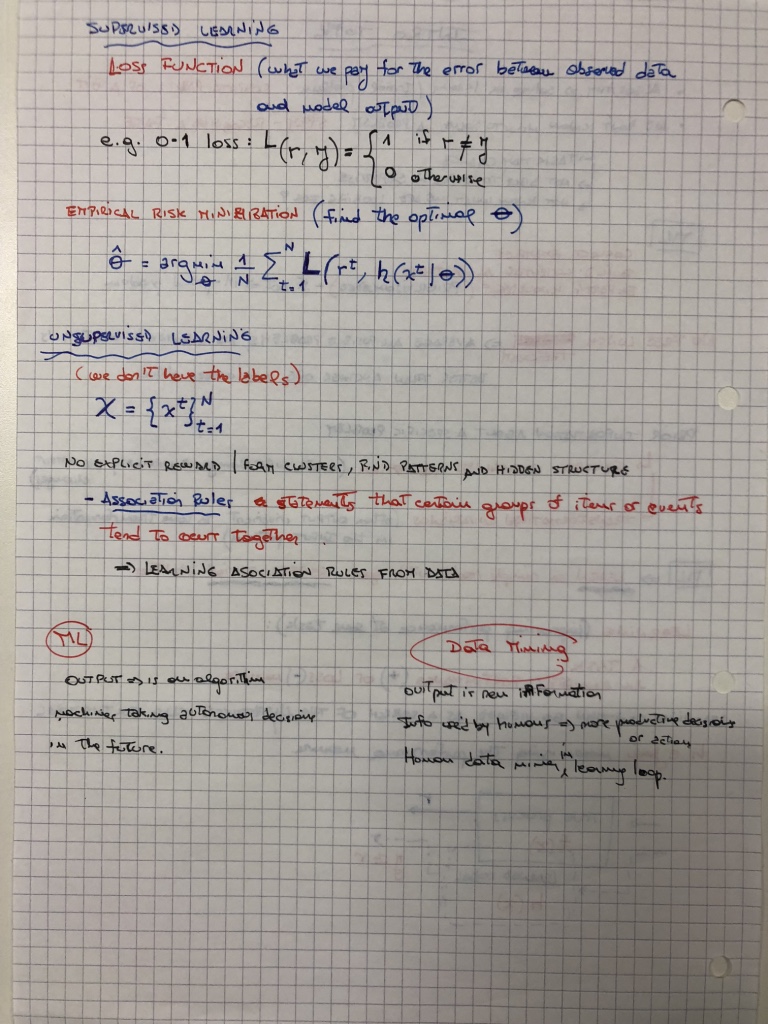 SUPERVISED LEARNING
LOSS FUNCTION (what we pay for the error between observed data
and model output)
e.g. 0-1 loss: L(r, y) = { 1 if r ≠ y
0 otherwise
EMPIRICAL RISK MINIMIZATION (find the optimal θ)
θ̂ = argmin_θ 1/N Σ_{t=1}^{N} L(r^t, h(x^t | θ))
UNSUPERVISED LEARNING
(we don't have the labels)
X = {x^t}_{t=1}^{N}
NO EXPLICIT REWARD | FORM CLUSTERS, FIND PATTERNS AND HIDDEN STRUCTURE
- Association Rules statements that certain groups of items or events
tend to occur together
⇒ LEARNING ASOCIATION RULES FROM DATA
ML
OUTPUT ⇒ is an algorithm
machines taking autonomous decisions
in the future.
Data Mining
output is new information
Info used by humans ⇒ more productive decisions
or actions
Human data mining in learning loop.